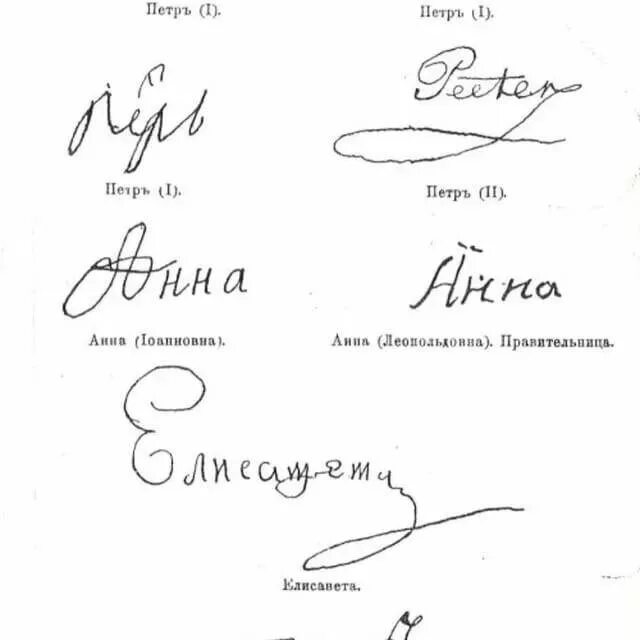 Петръ (I). Петръ (I).
Петръ Peeter
Петръ (I). Петръ (II).
Анна Анна
Анна (Іоанновна). Анна (Леопольдовна). Правительница.
Елисавета
Елисавета.